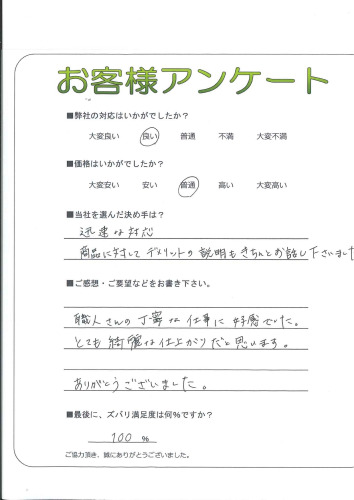 お客様アンケート
■弊社の対応はいかがでしたか？
大変良い 良い 普通 不満 大変不満
■価格はいかがでしたか？
大変安い 安い 普通 高い 大変高い
■当社を選んだ決め手は？
迅速な対応
商品に対してデメリットの説明もきちんとお話し下さいました
■ご感想・ご要望などをお書き下さい。
職人さんの丁寧な仕事に好感でした。
とても綺麗な仕上がりだと思います。
ありがとうございました。
■最後に、ズバリ満足度は何%ですか？
100 %
ご協力頂き、誠にありがとうございました。